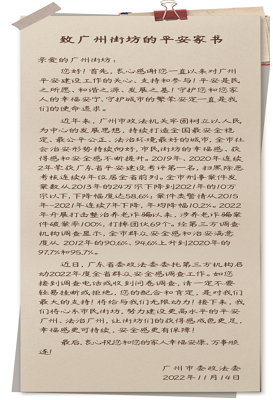 致广州街坊的平安家书
亲爱的广州街坊:
您好!首先,衷心感谢您一直以来对广州
平安建设工作的关心、支持和参与!平安是民
之所愿,和谐之源,发展之基!守护您和您家
人的幸福安宁,守护城市的繁荣安定一直是我
们的使命追求。
近年来,广州市政法机关牢固树立以人民
为中心的发展思想,持续打造全国最安全稳
定、最公平公正、法治环境最好的城市,全市社
会治安形势持续向好,市民街坊的幸福感、获
得感和安全感不断提升。2019年、2020年连续
2年荣获广东省平安建设考评第一名,扫黑除恶
考核连续4年位居全省前列。全市刑事案件发
案数从2013年的24万宗下降到2021年的10万
宗以下,下降幅度达58.6%;案件类警情从2015
年-2021年连续7年下降,年均降幅10.2%。2022
年开展打击整治养老诈骗以来,涉养老诈骗案
件破案率100%,打掉团伙69个。经第三方调查
机构调查显示,全市群众安全感和治安满意
度从 2012年的90.6%、94.6%上升到2020年的
97.7%和95.7%。
近日,广东省委政法委委托第三方机构启
动2022年度全省群众安全感调查工作。如您
接到调查电话或收到问卷调查,请一定不要
轻易挂断或拒绝,您的配合和肯定,是对我们
最大的支持!将给与我们无限动力!接下来,我
们将心系市民街坊,努力建设更高水平的平安
广州、法治广州,让街坊们的获得感成色更足、
幸福感更可持续、安全感更有保障!
最后,衷心祝您和您的家人幸福安康,万事顺
遂!
广州市委政法委
2022年11月14日